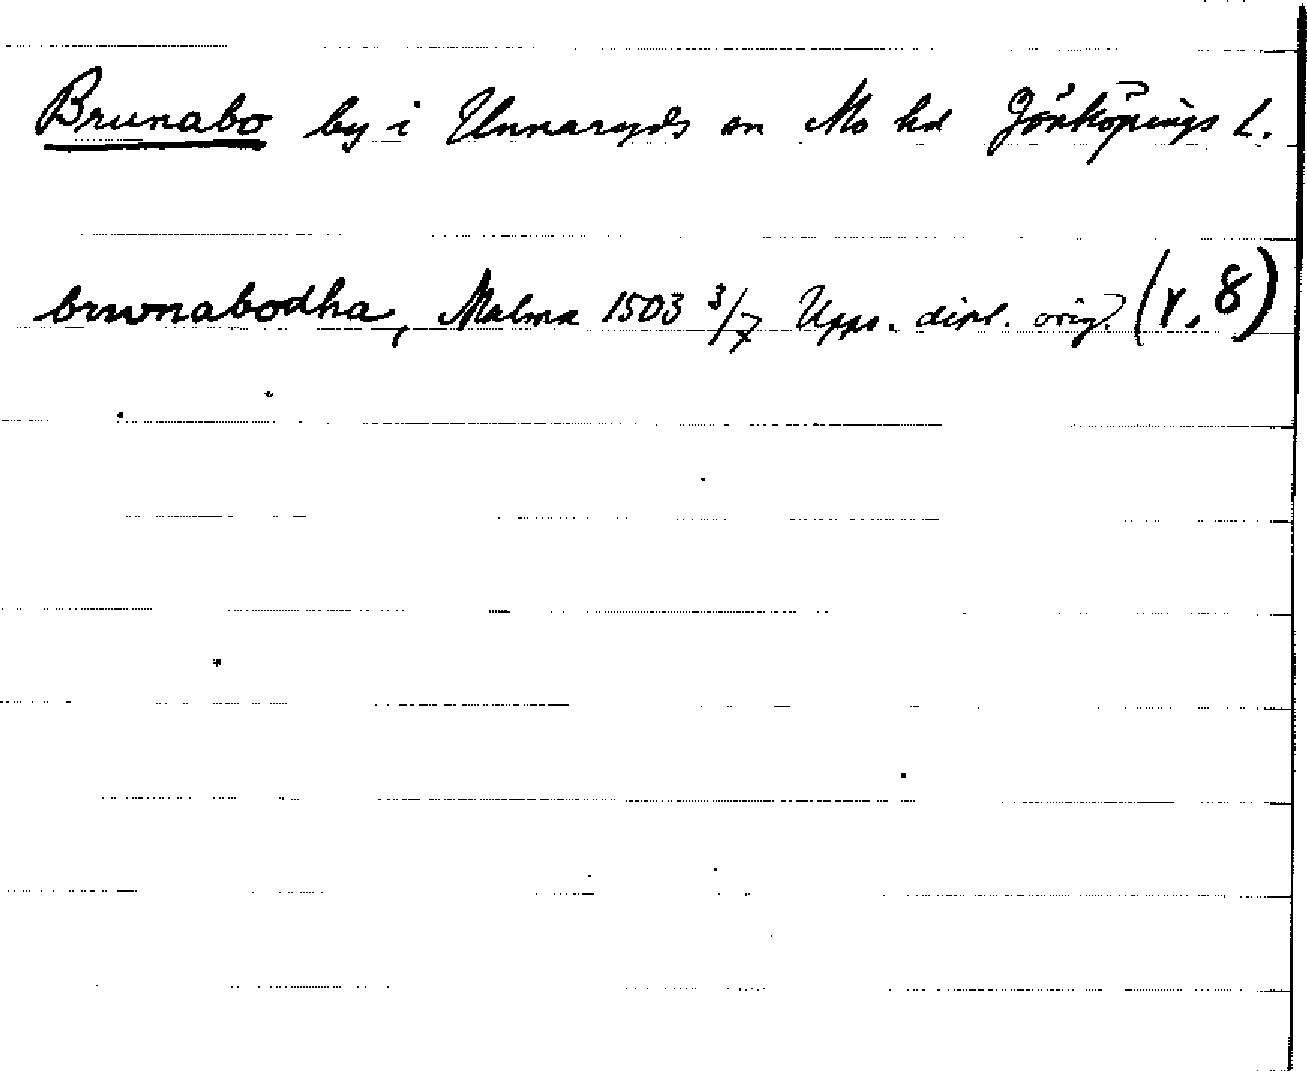 Brunabo by i Unnaryds sn Mo hd Jönköpings L.
brwnabodha, Malma 1503 3/7 Upps. dipl. orig. (r. 8)